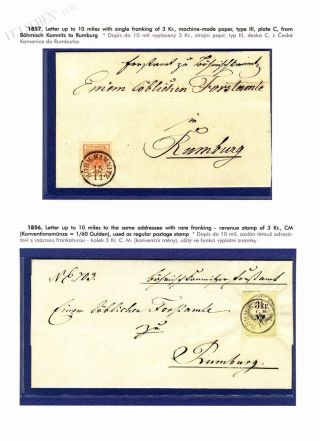 1857, Letter up to 10 miles with single franking of 3 Kr., machine-made paper, type III, plate C, from
Böhmisch Kamnitz to Rumburg * Dopis do 10 mil vyplacený 3 Kr, strojní papír, typ III, deska C, z České
Kamenice do Rumburka
Forstamt zu böhmischkamnitz
Einem löblichen Forstamte
in
Rumburg
1856, Letter up to 10 miles to the same addressee with rare franking - revenue stamp of 3 Kr., CM
(Konventionsmünze = 1/60 Gulden), used as regular postage stamp * Dopis do 10 mil, zaslán témuž adresá-
tovi s vzácnou frankaturou - kolek 3 Kr. C. M. (konvenční měny), užitý ve funkci výplatní známky
No 703 böhmischkamnitzer Forstamt
Einem löblichen Forstamte
zu
Rumburg.
3 kr